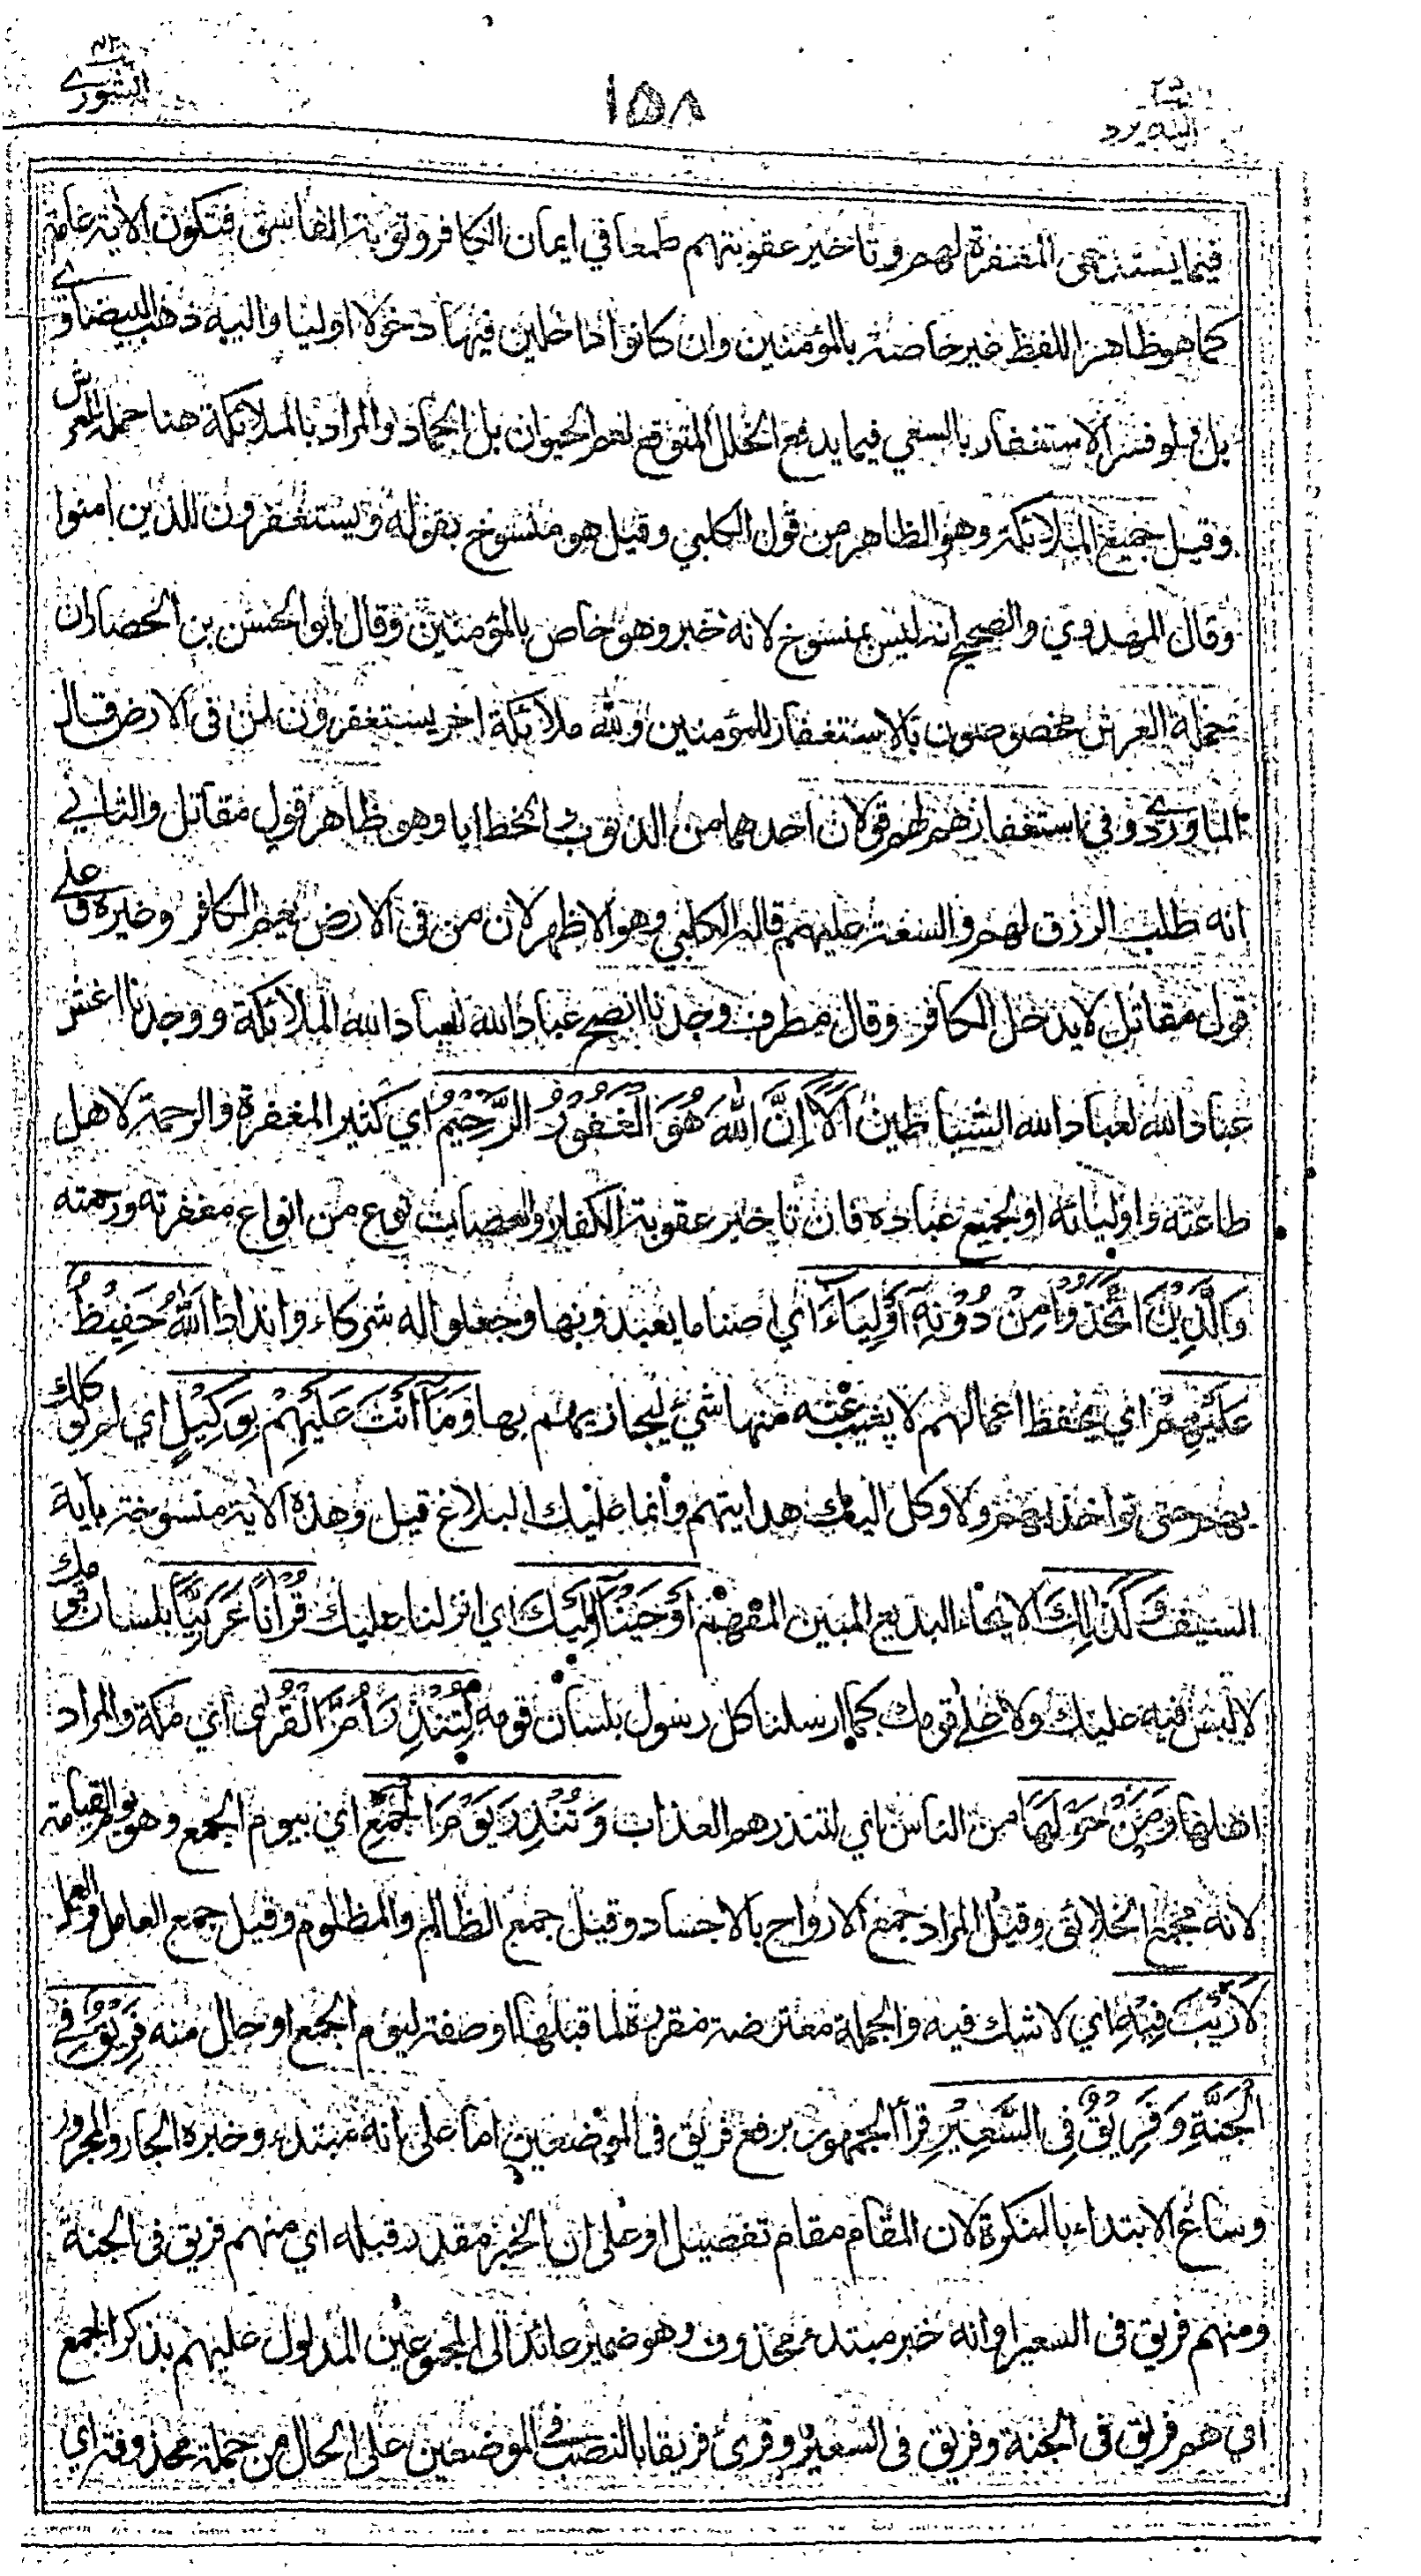 الشورى ٤٢
١٥٨
اليه يرد ٢٥
فيما يستدعى المغفرة لهم وتاخير عقوبتهم طمعا في ايمان الكافر وتوبة الفاسق فتكون الأية عامة
كما هو ظاهر اللفظ غير خاصة بالمؤمنين وان كانوا داخلين فيها دخولا اوليا واليه ذهب البيضاوي
بل فلو فسر الاستغفار بالسعي فيما يدفع الخلل المتوقع لعم الحيوان بل الجماد والمراد بالملائكة هنا حملة العرش
وقيل جميع الملائكة وهو الظاهر من قول الكلبي وقيل هو منسوخ بقوله ويستغفرون للذين امنوا
وقال المهدوي والصحيح انه ليس بمنسوخ لانه خبر وهو خاص بالمؤمنين وقال ابو الحسن بن الحصار ان
حملة العرش مخصوصون بالاستغفار للمؤمنين ولله ملائكة اخر يستغفرون لمن في الارض قال
الماوردي وفي استغفارهم لهم قولان احدهما من الذنوب والخطايا وهو ظاهر قول مقاتل والثاني
انه طلب الرزق لهم والسعة عليهم قاله الكلبي وهو الاظهر لان من في الارض يعم الكافر وغيره وعلى
قول مقاتل لا يدخل الكافر وقال مطرف وجدنا انصح عباد الله لعباد الله الملائكة ووجدنا اغش
عباد الله لعباد الله الشياطين اَلَآ اِنَّ اللهَ هُوَ الْغَفُوْرُ الرَّحِيْمُ اي كثير المغفرة والرحمة لاهل
طاعته واوليائه او لجميع عباده فان تاخير عقوبة الكفار والعصاة نوع من انواع مغفرته ورحمته
وَالَّذِيْنَ اتَّخَذُوْا مِنْ دُوْنِهٖٓ اَوْلِيَآءَ اي اصناما يعبدونها وجعلوا له شركاء واندادا اَللهُ حَفِيْظٌ
عَلَيْهِمْ اي يحفظ اعمالهم لا يغيب عنه منها شيء ليجازيهم بها وَمَآ اَنْتَ عَلَيْهِمْ بِوَكِيْلٍ اي لم نوكلك
بهم حتى تواخذ بهم ولا وكل اليك هدايتهم وانما عليك البلاغ قيل وهذه الأية منسوخة بآية
السيف وَكَذٰلِكَ الايحاء البديع المبين المفهم اَوْحَيْنَآ اِلَيْكَ اي انزلنا عليك قُرْاٰنًا عَرَبِيًّا بلسان قومك
لا لبس فيه عليك ولا على قومك كما ارسلنا كل رسول بلسان قومه لِتُنْذِرَ اُمَّ الْقُرٰى اي مكة والمراد
اهلها وَمَنْ حَوْلَهَا من الناس اي لتنذرهم العذاب وَتُنْذِرَ يَوْمَ الْجَمْعِ اي بيوم الجمع وهو يوم القيامة
لانه مجمع الخلائق وقيل المراد جمع الارواح بالاجساد وقيل جمع الظالم والمظلوم وقيل جمع العامل والعمل
لَا رَيْبَ فِيْهِ اي لا شك فيه والجملة معترضة مقررة لما قبلها او صفة ليوم الجمع او حال منه فَرِيْقٌ فِى
الْجَنَّةِ وَفَرِيْقٌ فِى السَّعِيْرِ قرأ الجمهور برفع فريق في الموضعين اما على انه مبتدء وخبره الجار والمجرور
وساغ الابتداء بالنكرة لان المقام مقام تفصيل او على ان الخبر مقدر قبله اي منهم فريق في الجنة
ومنهم فريق في السعير او انه خبر مبتدء محذوف وهو ضمير عائد الى المجموعين المدلول عليهم بذكر الجمع
اي هم فريق في الجنة وفريق في السعير وقرئ فريقا بالنصب في الموضعين على الحال من جملة محذوفة اي